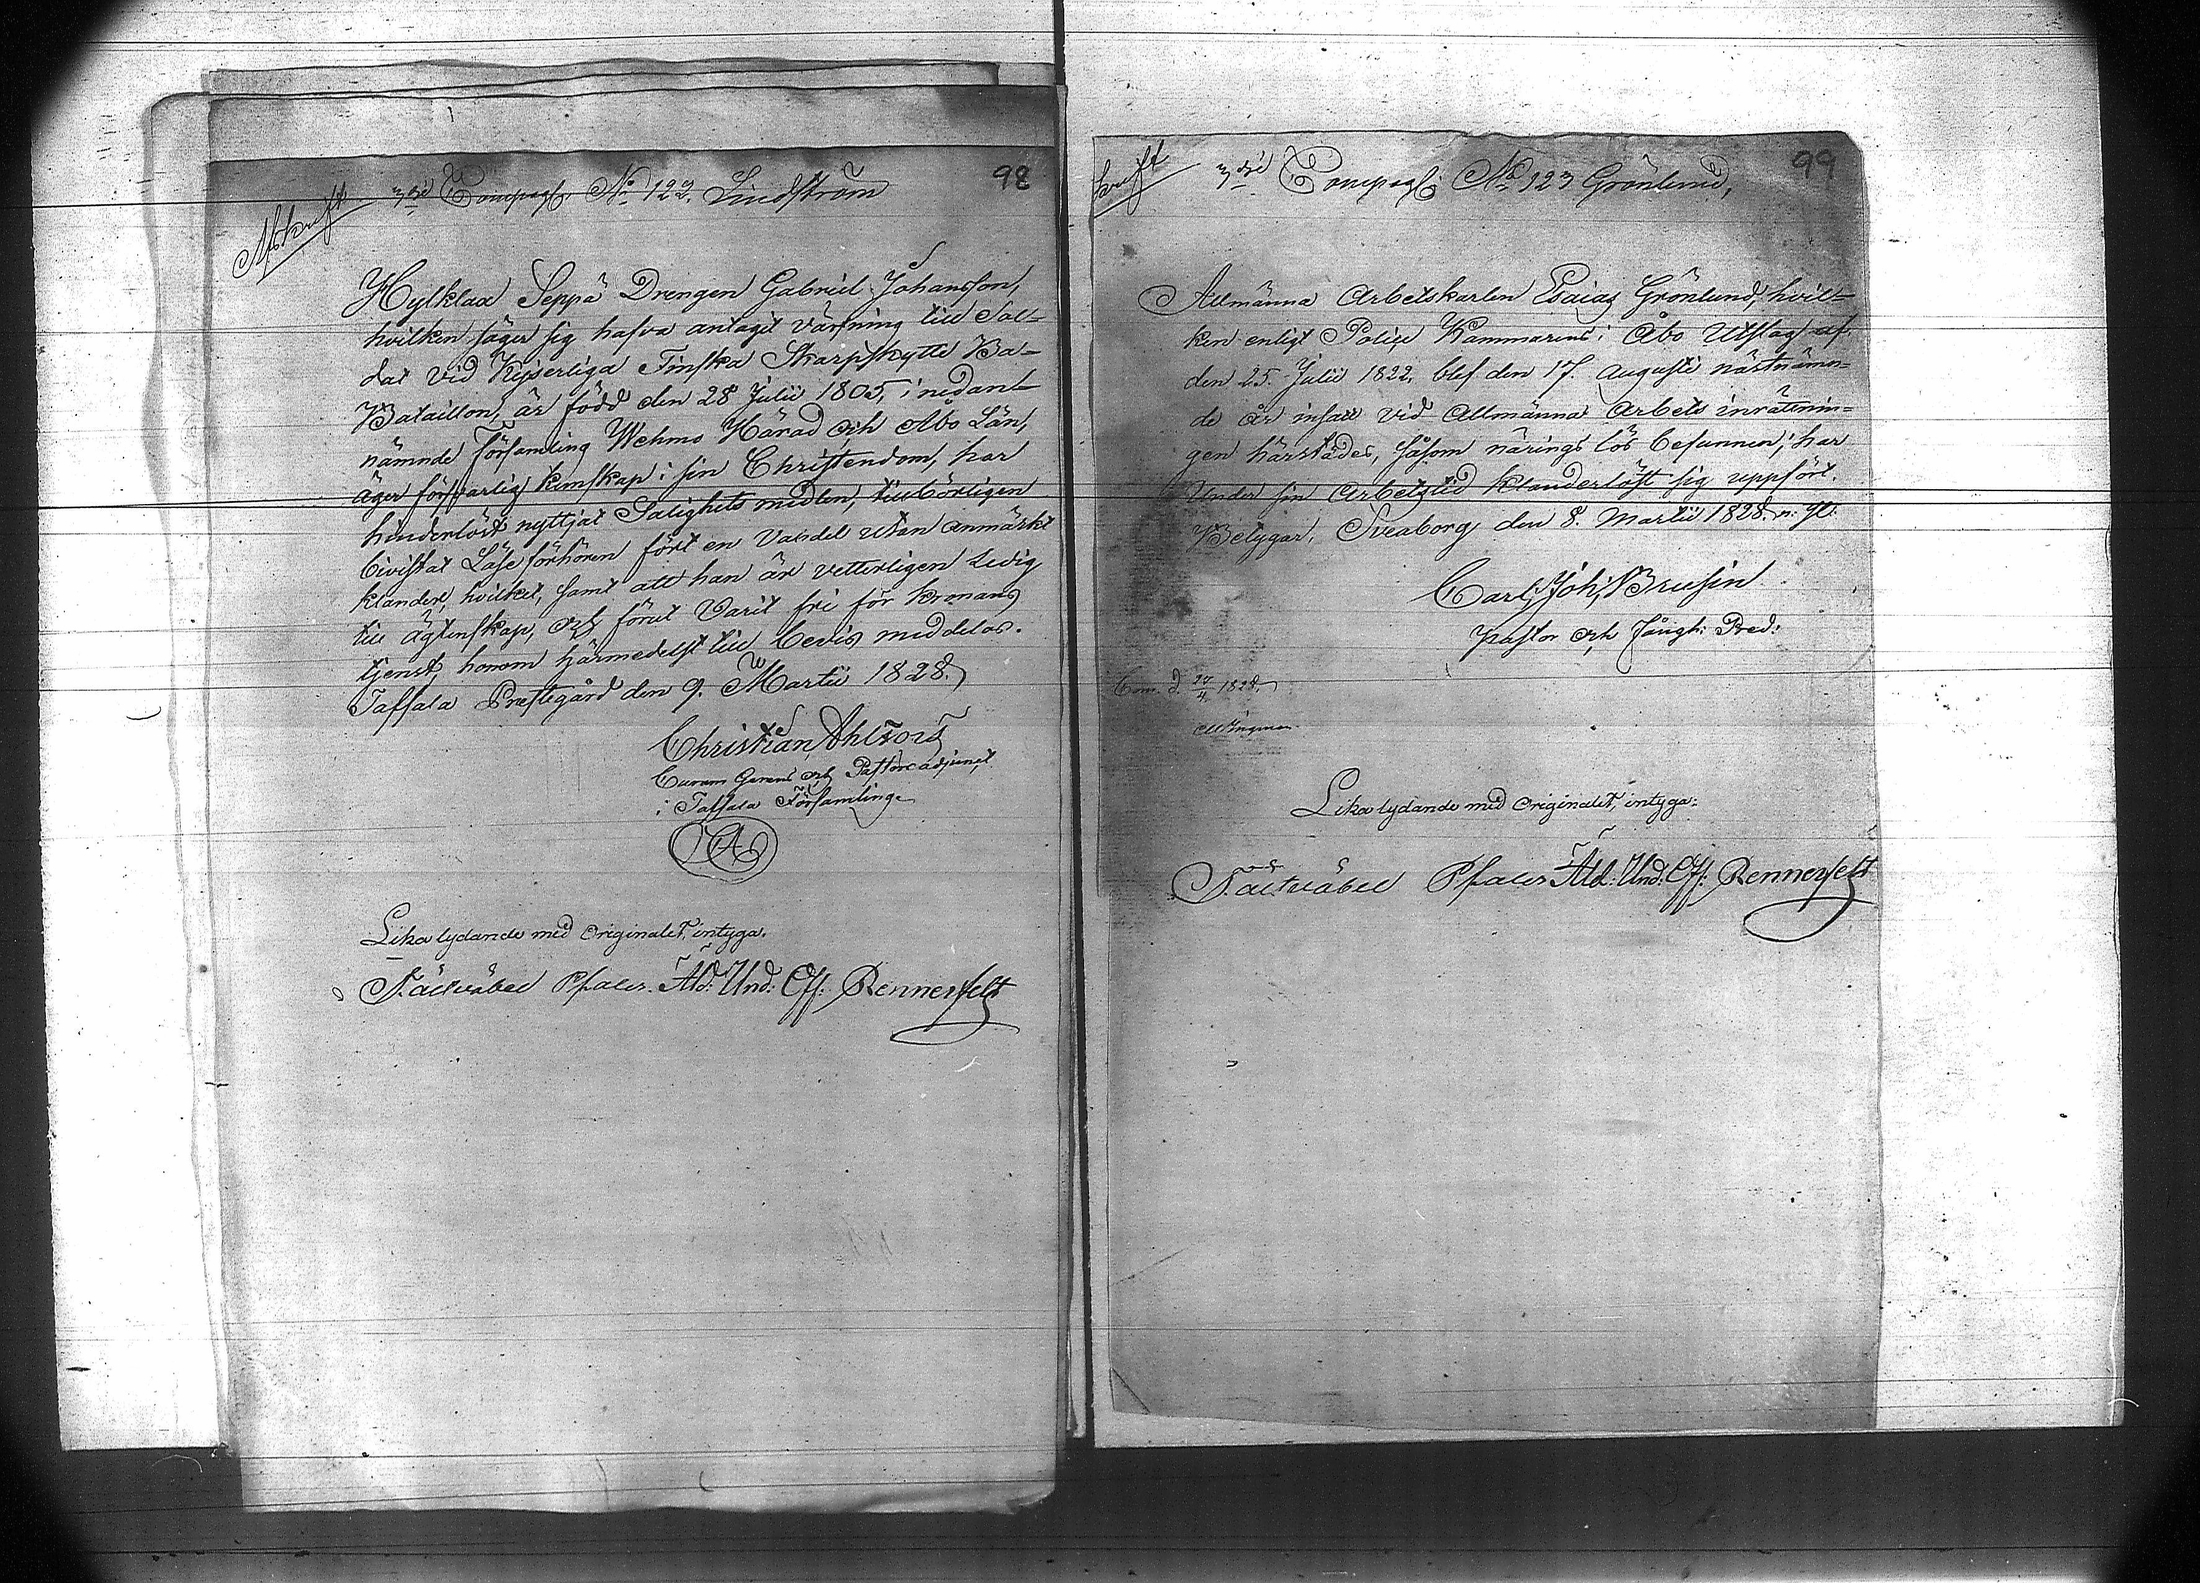 98
Afskrift
3die Compagt. No 122. Lindström
Hylklax Seppä Drengen Gabriel Johansson,
hvilken säger sig hafva antagit värfning till Sol=
dat vid Kejserliga Finska Skarpskytte Ba=
Bataillon, är född den 28 Julii 1805, i nedan=
nämnde Församling Wehmo Härad och Åbo Län,
äger försvarlig kunskap i sin Christendom, har
hinderlöst nyttjat Salighets medlen, tillbörligen
bivistat Läseförhören fört en Vandel utan anmärkt
klander, hvilket, samt att han är vetterligen Ledig
till ägtenskap, och förut Varit fri för kronans
tjenst, honom härmedelst till bevis meddelas.
Taffsala Prestegård den 9. Martii 1828.
Christian Ahlfors
Curam Gerens och Pastorsadjunct
i Taffsala Församling
CA
Lika lydande med Originalet, intyga.
Fältväbel Pfaler. Äld: Und: Off: Rennerfelt
99
skrift
3die Compagt. No 123 Grönlund,
Allmänna Arbetskarlen Esaias Grönlund, hvil=
ken enligt Police Kammarens i Åbo Utslag af
den 25. Julii 1822, blef den 17. Augusti nästnämn=
de år insatt vid Allmänna Arbets inrättnin=
gen härstädes, såsom närings lös befunnen, har
Under sin Arbetstid klanderlöst sig uppfört.
Betygar, Sveaborg den 8. Martii 1828.
Carl Joh: Brusin
Pastor och Fängh: Pred:
1828.
Lika lydande med Originalet, intyga:
Fältväbel Pfaler Äld: Und: Off: Rennerfelt